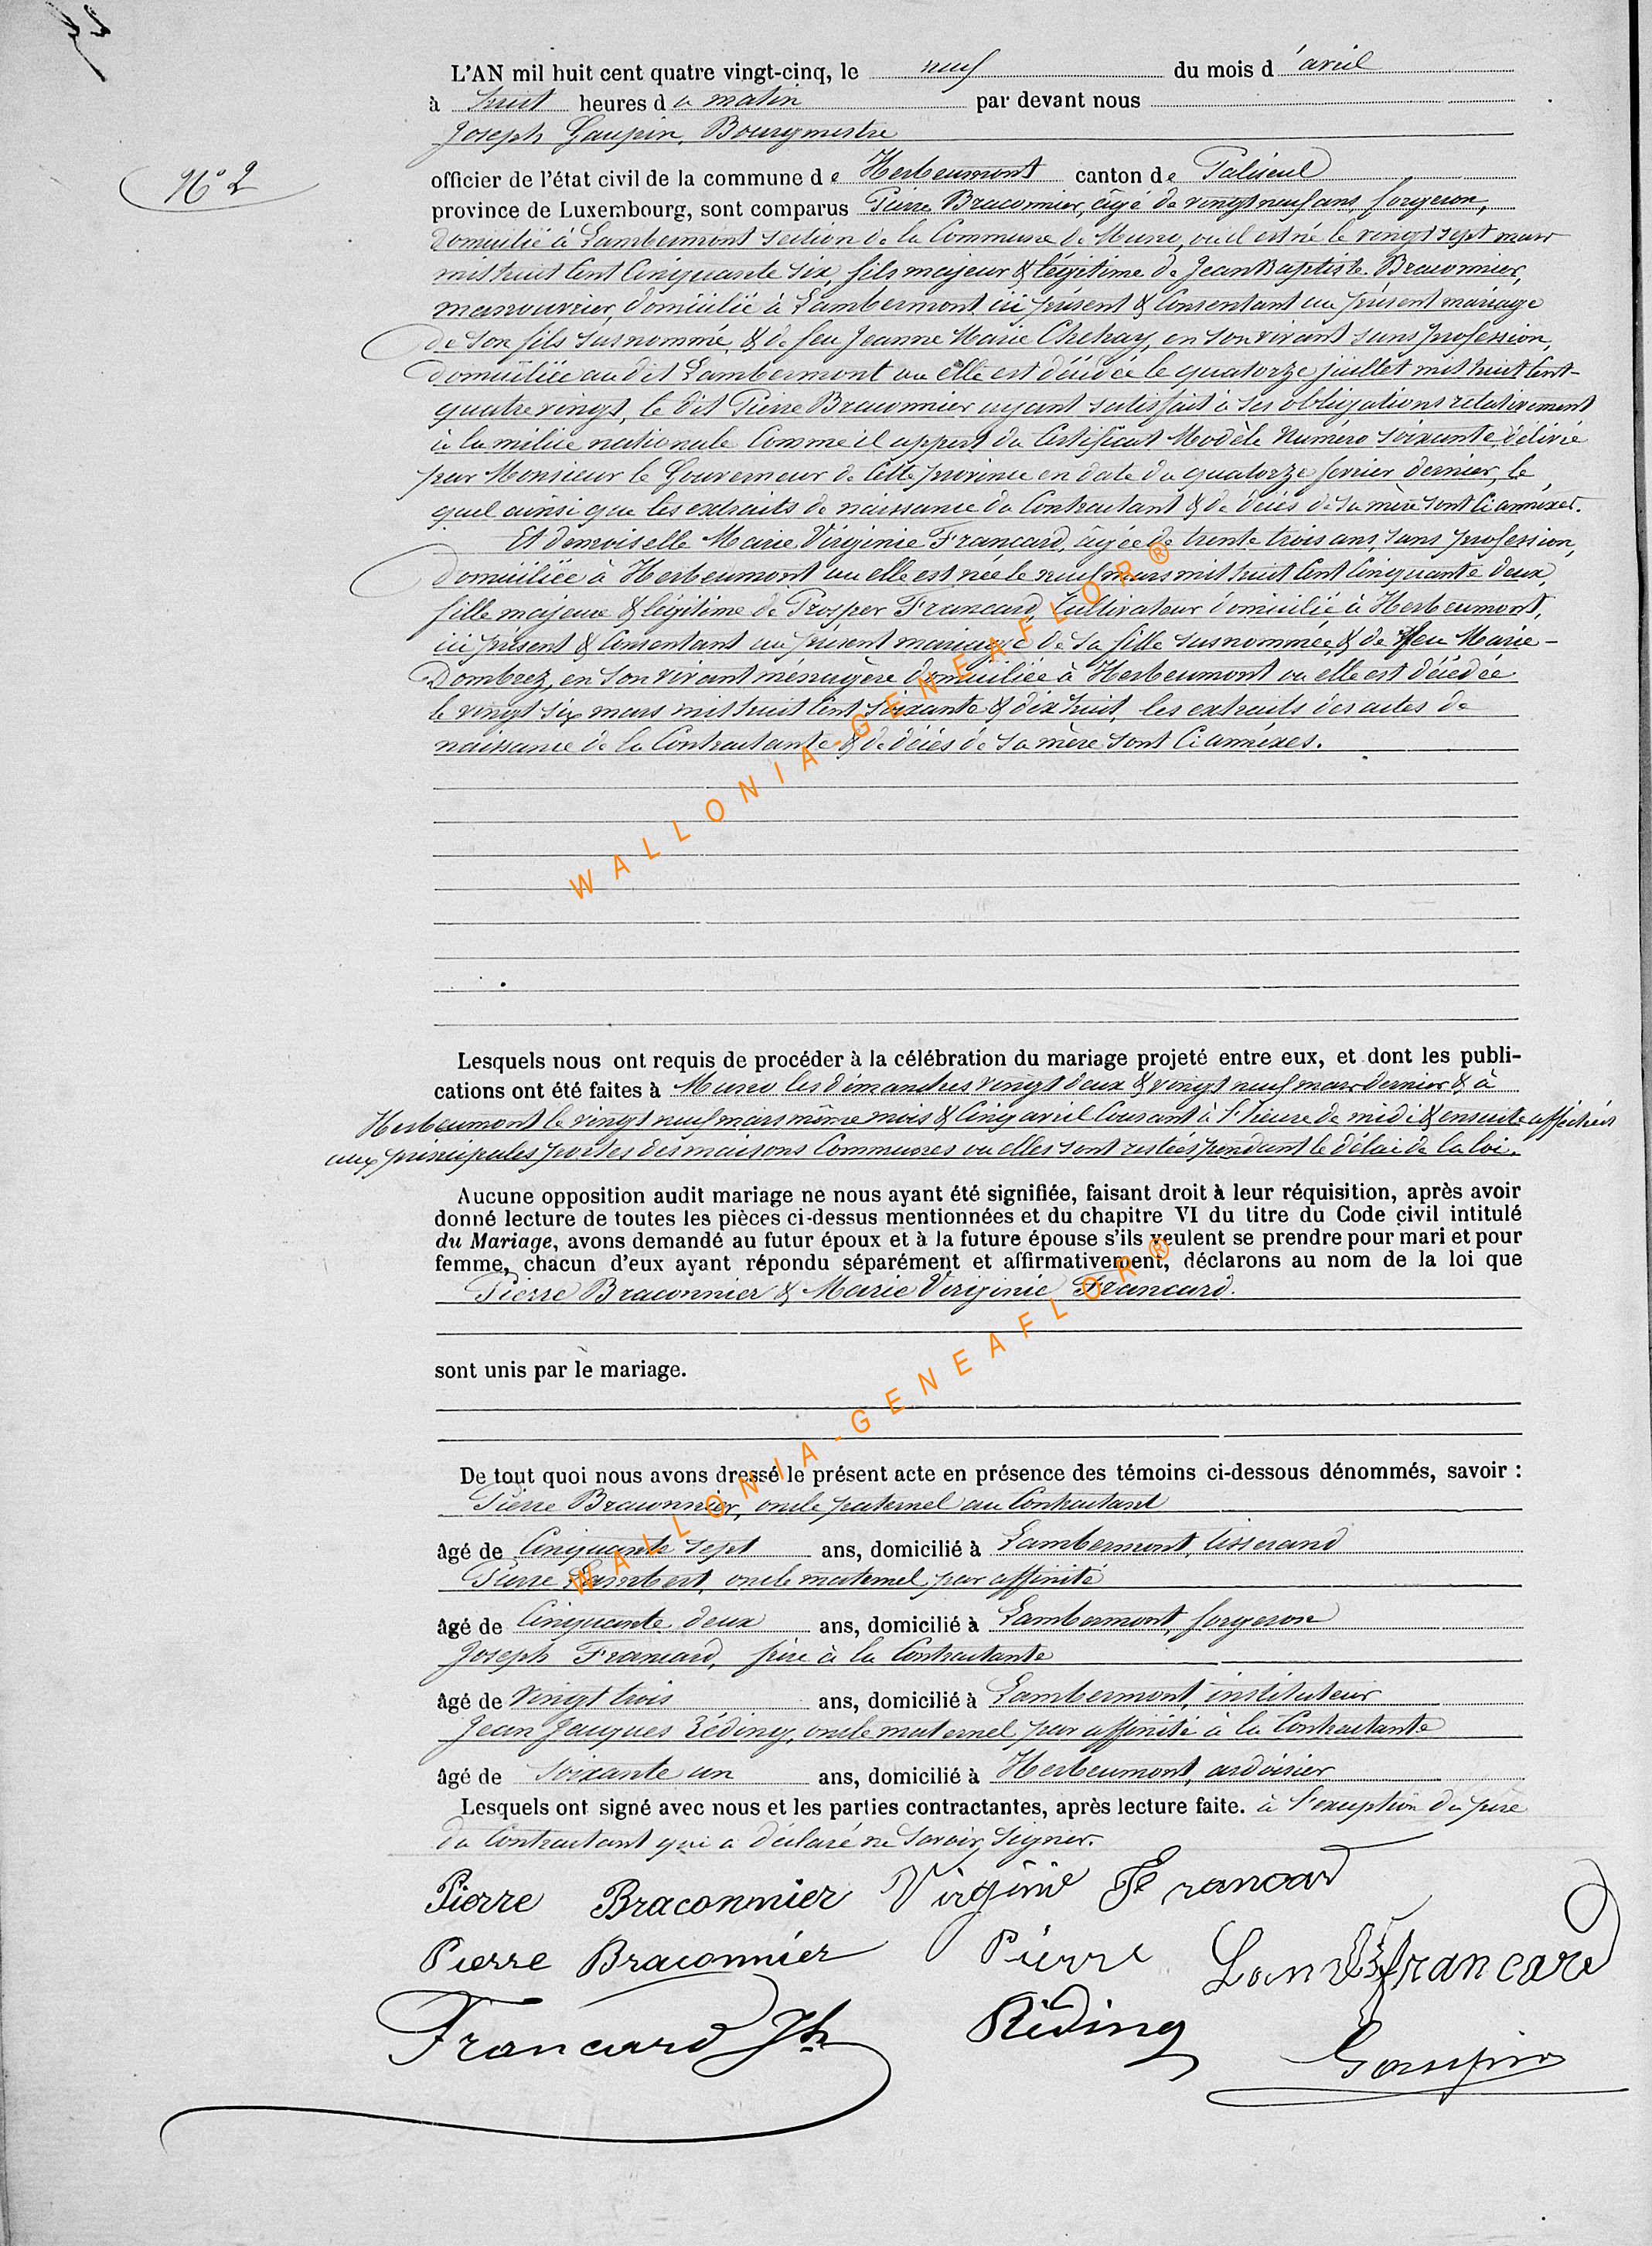 L'AN mil huit cent quatre vingt-cinq, le neuf du mois d'avril
à huit heures du matin par devant nous
Joseph Gaupin, Bourgmestre
N° 2
officier de l'état civil de la commune de Herbeumont canton de Paliseul
province de Luxembourg, sont comparus Pierre Braconnier, âgé de vingt neuf ans, forgeron,
domicilié à Lambermont section de la Commune de Muno, où il est né le vingt sept mars
mil huit Cent Cinquante six, fils majeur & légitime de Jean Baptiste Braconnier,
manouvrier, domicilié à Lambermont ici présent & Consentant au présent mariage
de son fils susnommé, & de feu Jeanne Marie Chehay, en son vivant sans profession,
domiciliée au dit Lambermont ou elle est décédée le quatorze juillet mil huit Cent-
quatre vingt, le dit Pierre Braconnier ayant satisfait à ses obligations relativement
à la milice nationale Comme il appert du Certificat Modèle Numéro soixante, délivré
par Monsieur le Gouverneur de Cette province en date du quatorze fevrier dernier, le
quel ainsi que les extraits de naissance du Contractant & de décès de sa mère sont Ci annéxés.
Et demoiselle Marie Virginie Francard, âgée de trente trois ans, sans profession,
domiciliée à Herbeumont ou elle est née le neuf mars mil huit Cent Cinquante deux,
fille majeure & légitime de Prosper Francard, Cultivateur domicilié à Herbeumont,
ici présent & Consentant au présent mariage de sa fille susnommée, & de feu Marie-
Dombrez, en son vivant ménagère domiciliée à Herbeumont ou elle est décédée
le vingt six mars mil huit Cent soixante & dix huit, les extraits des actes de
naissance de la Contractante & de décès de sa mère sont Ci annéxés.
WALLONIA-GENEAFLOR®
Lesquels nous ont requis de procéder à la célébration du mariage projeté entre eux, et dont les publi-
cations ont été faites à Muno les dimanches vingt deux & vingt neuf mars dernier & à
Herbeumont le vingt neuf mars même mois & Cinq avril Courant à l'heure de midi & ensuite affichées
aux principales portes des maisons Communes ou elles sont restées pendant le délai de la loi.
Aucune opposition audit mariage ne nous ayant été signifiée, faisant droit à leur réquisition, après avoir
donné lecture de toutes les pièces ci-dessus mentionnées et du chapitre VI du titre du Code civil intitulé
du Mariage, avons demandé au futur époux et à la future épouse s'ils veulent se prendre pour mari et pour
femme, chacun d'eux ayant répondu séparément et affirmativement, déclarons au nom de la loi que
Pierre Braconnier & Marie Virginie Francard.
sont unis par le mariage.
WALLONIA-GENEAFLOR®
De tout quoi nous avons dressé le présent acte en présence des témoins ci-dessous dénommés, savoir :
Pierre Braconnier, oncle paternel au Contractant
âgé de Cinquante sept ans, domicilié à Lambermont, tisserand
Pierre Lambert, oncle maternel par affinité
âgé de Cinquante deux ans, domicilié à Lambermont, forgeron
Joseph Francard, frère à la Contractante
âgé de vingt trois ans, domicilié à Lambermont, instituteur
Jean Jacques Réding, oncle maternel par affinité à la Contractante
âgé de soixante un ans, domicilié à Herbeumont, ardoisier
Lesquels ont signé avec nous et les parties contractantes, après lecture faite. à l'exception du père
du Contractant qui a déclaré ne savoir signer.
Pierre Braconnier Virginie Francard
Pierre Braconnier Pierre francard
Francard Jh Réding Gaupin